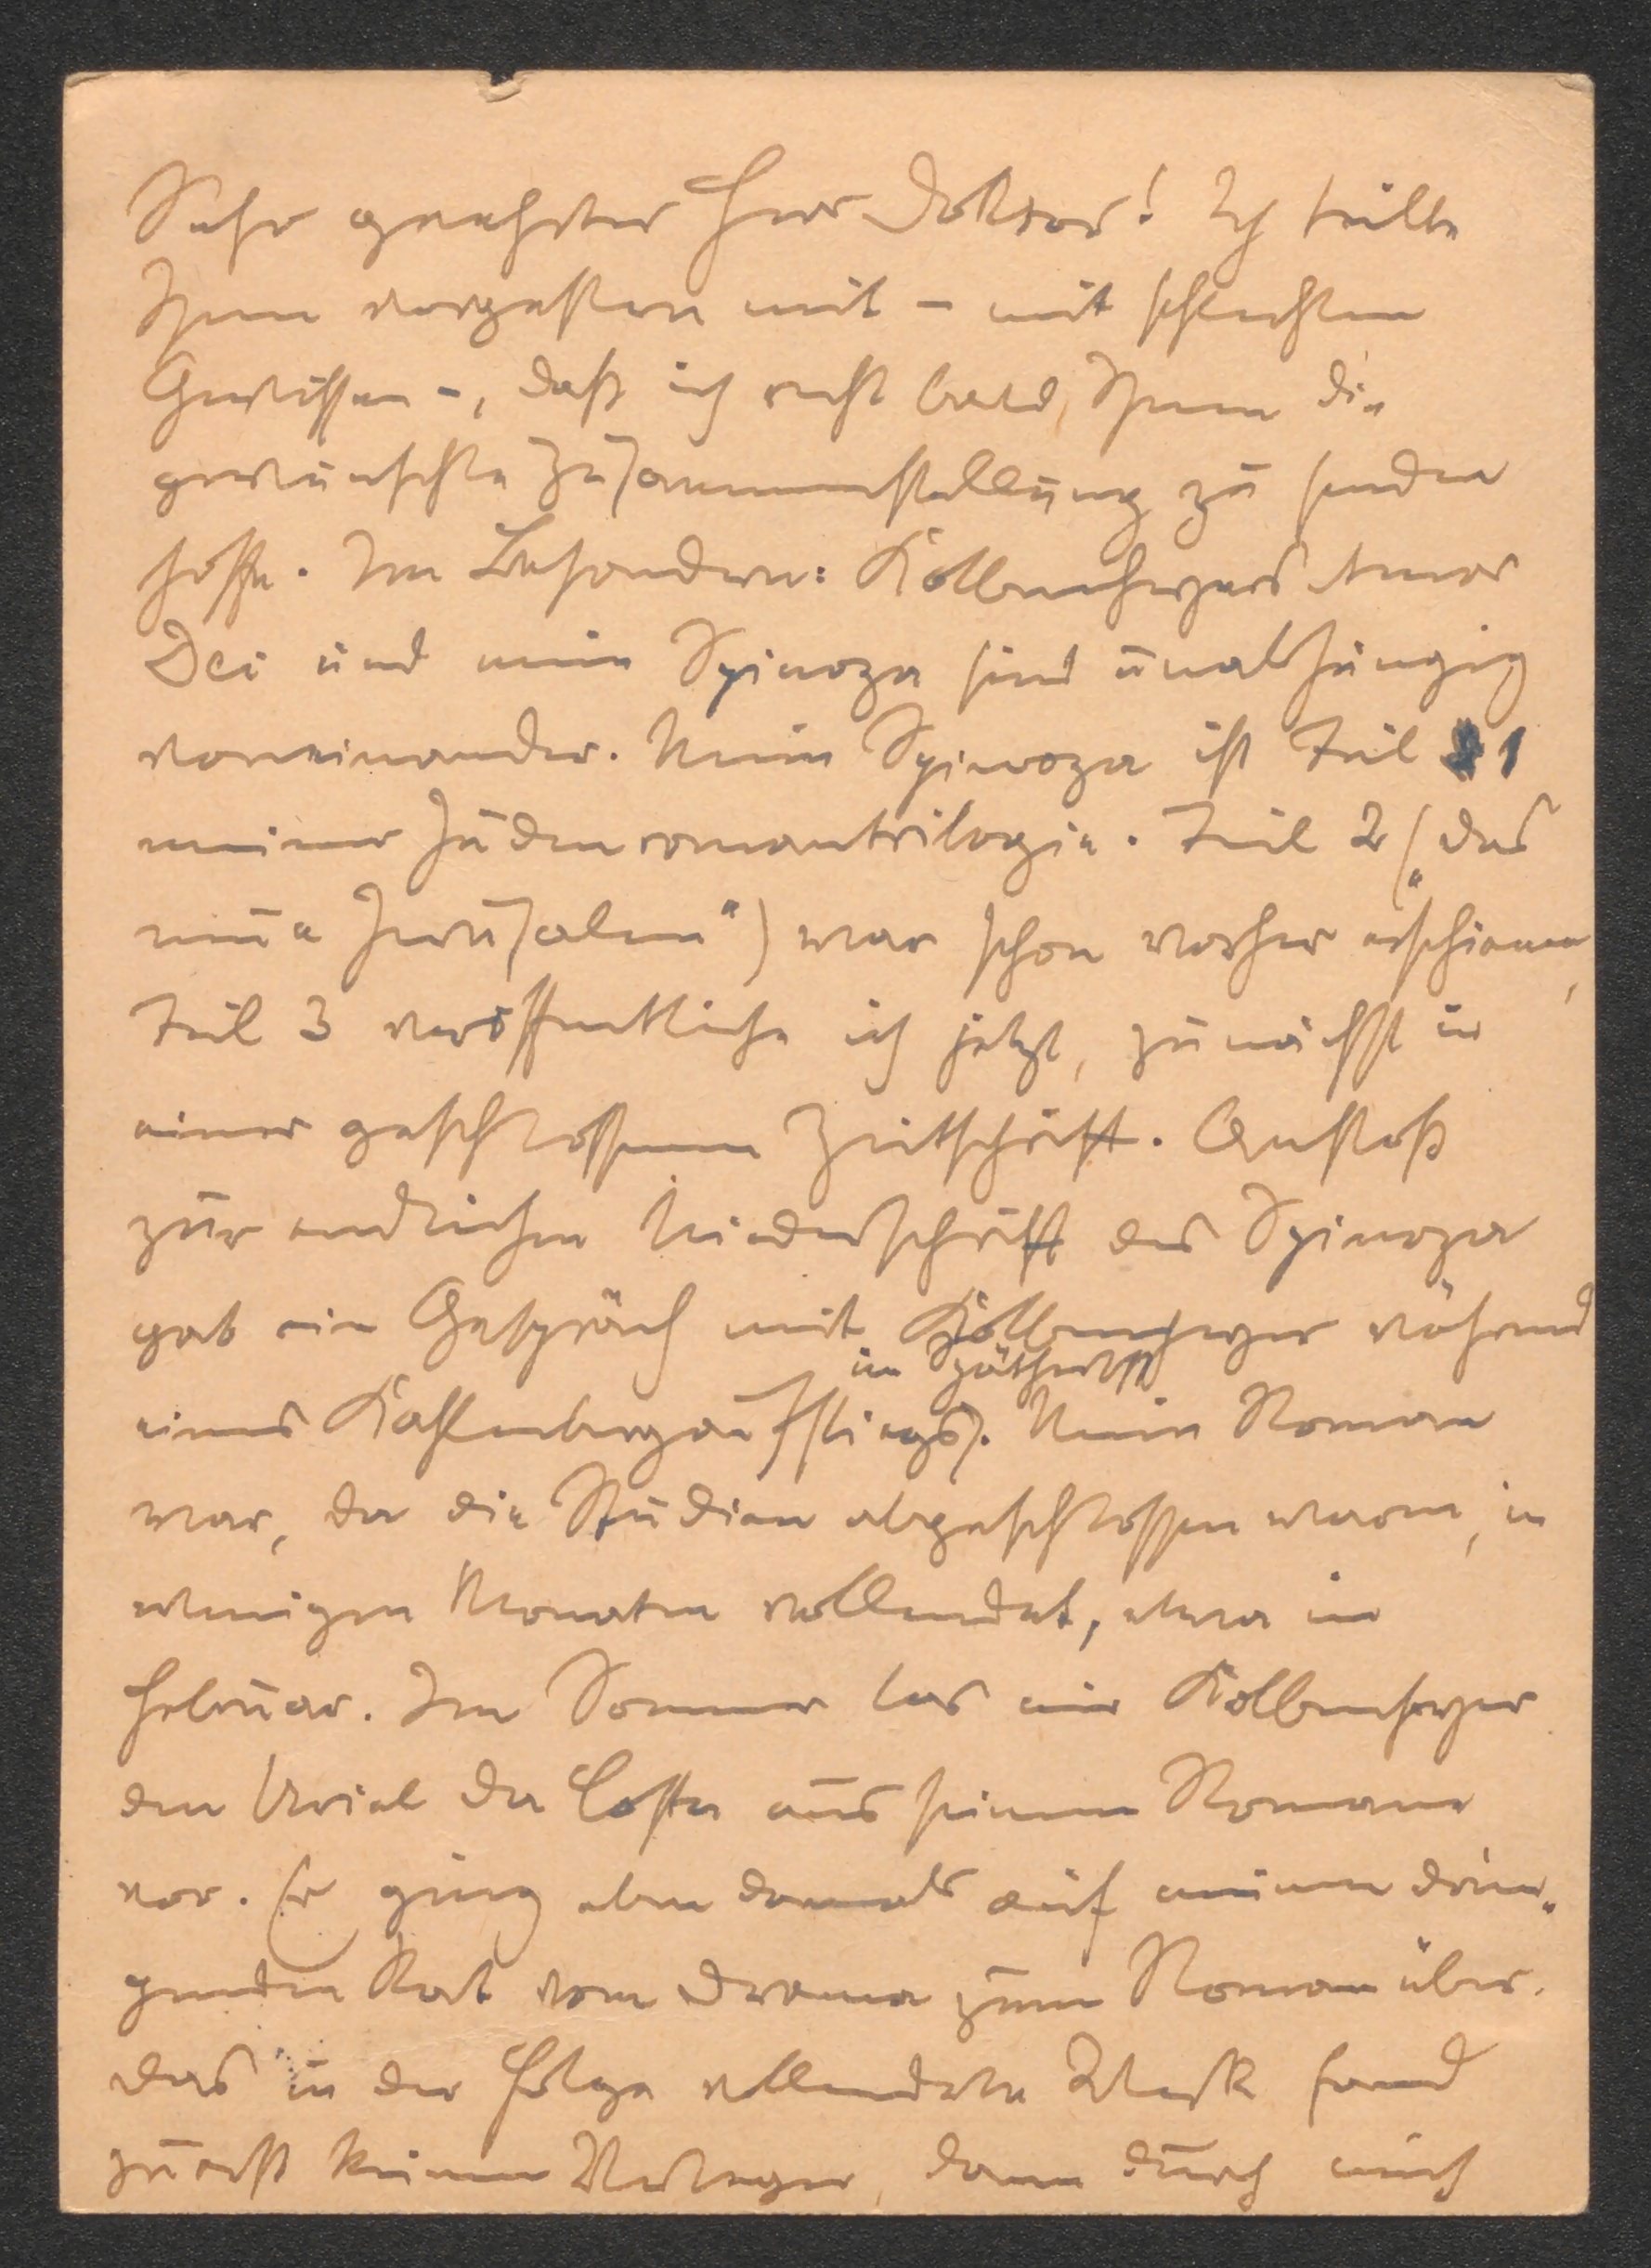 Sehr geehrter Herr Doktor! Ich teilte
Ihnen vorgestern mit – mit schlechtem
Gewissen –, daß ich recht bald Ihnen die
gewünschte Zusammenstellung zu senden
hoffe. Im Besondern: Kolbenheyers Amor
Dei und mein Spinoza sind unabhängig
voneinander. Mein Spinoza ist Teil 1
meiner Judenromantrilogie. Teil 2 („das
neue Jerusalem") war schon vorher erschienen,
Teil 3 veröffentliche ich jetzt, zunächst in
einer geschlossenen Zeitschrift. Anstoß
zur endlichen Niederschrift des Spinoza
gab ein Gespräch mit Kolbenheyer während
eines Kahlenbergaufstiegs im Spätherbst. Mein Roman
war, da die Studien abgeschlossen waren, in
wenigen Monaten vollendet, etwa im
Februar. Im Sommer las mir Kolbenheyer
den Uriel da Costa aus seinem Romane
vor. Er ging eben damals auf meinen drin-
genden Rat vom Drama zum Roman über.
Das in der Folge vollendete Werk fand
zuerst keinen Verleger, dann durch mich